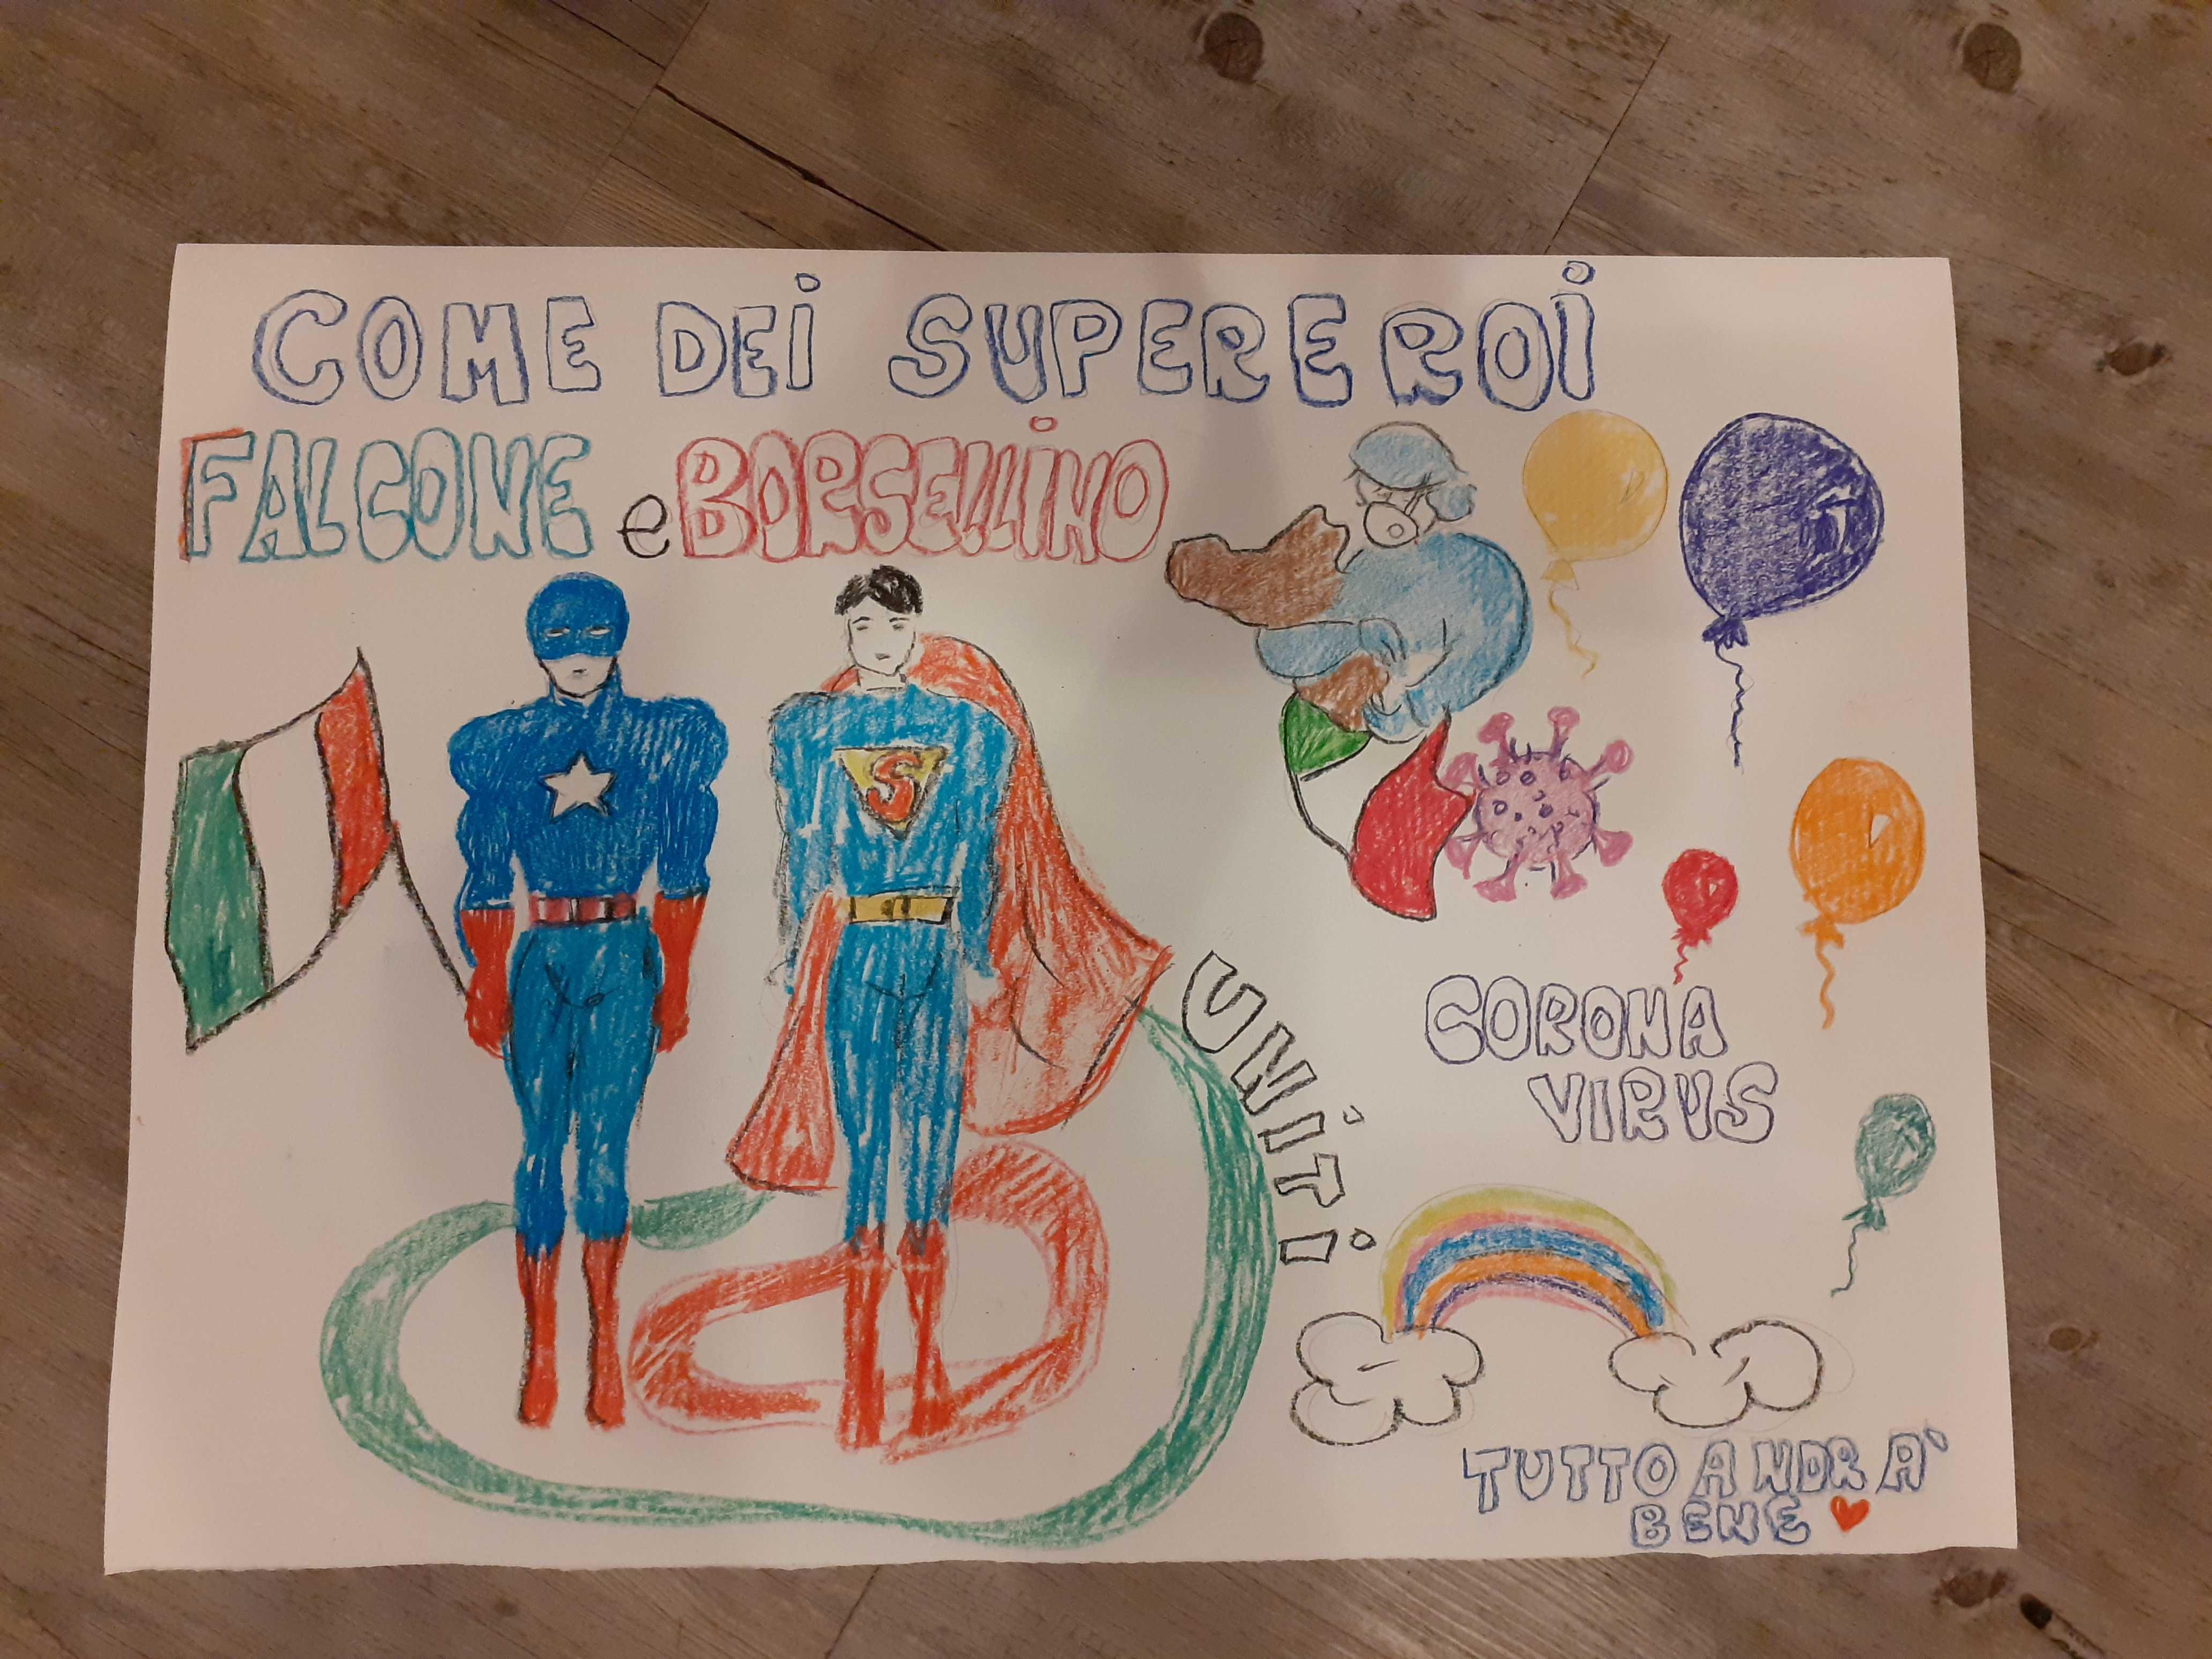 COME DEI SUPEREROI
FALCONE e BORSELLINO
S
UNITI
CORONA
VIRUS
TUTTO ANDRÀ
BENE